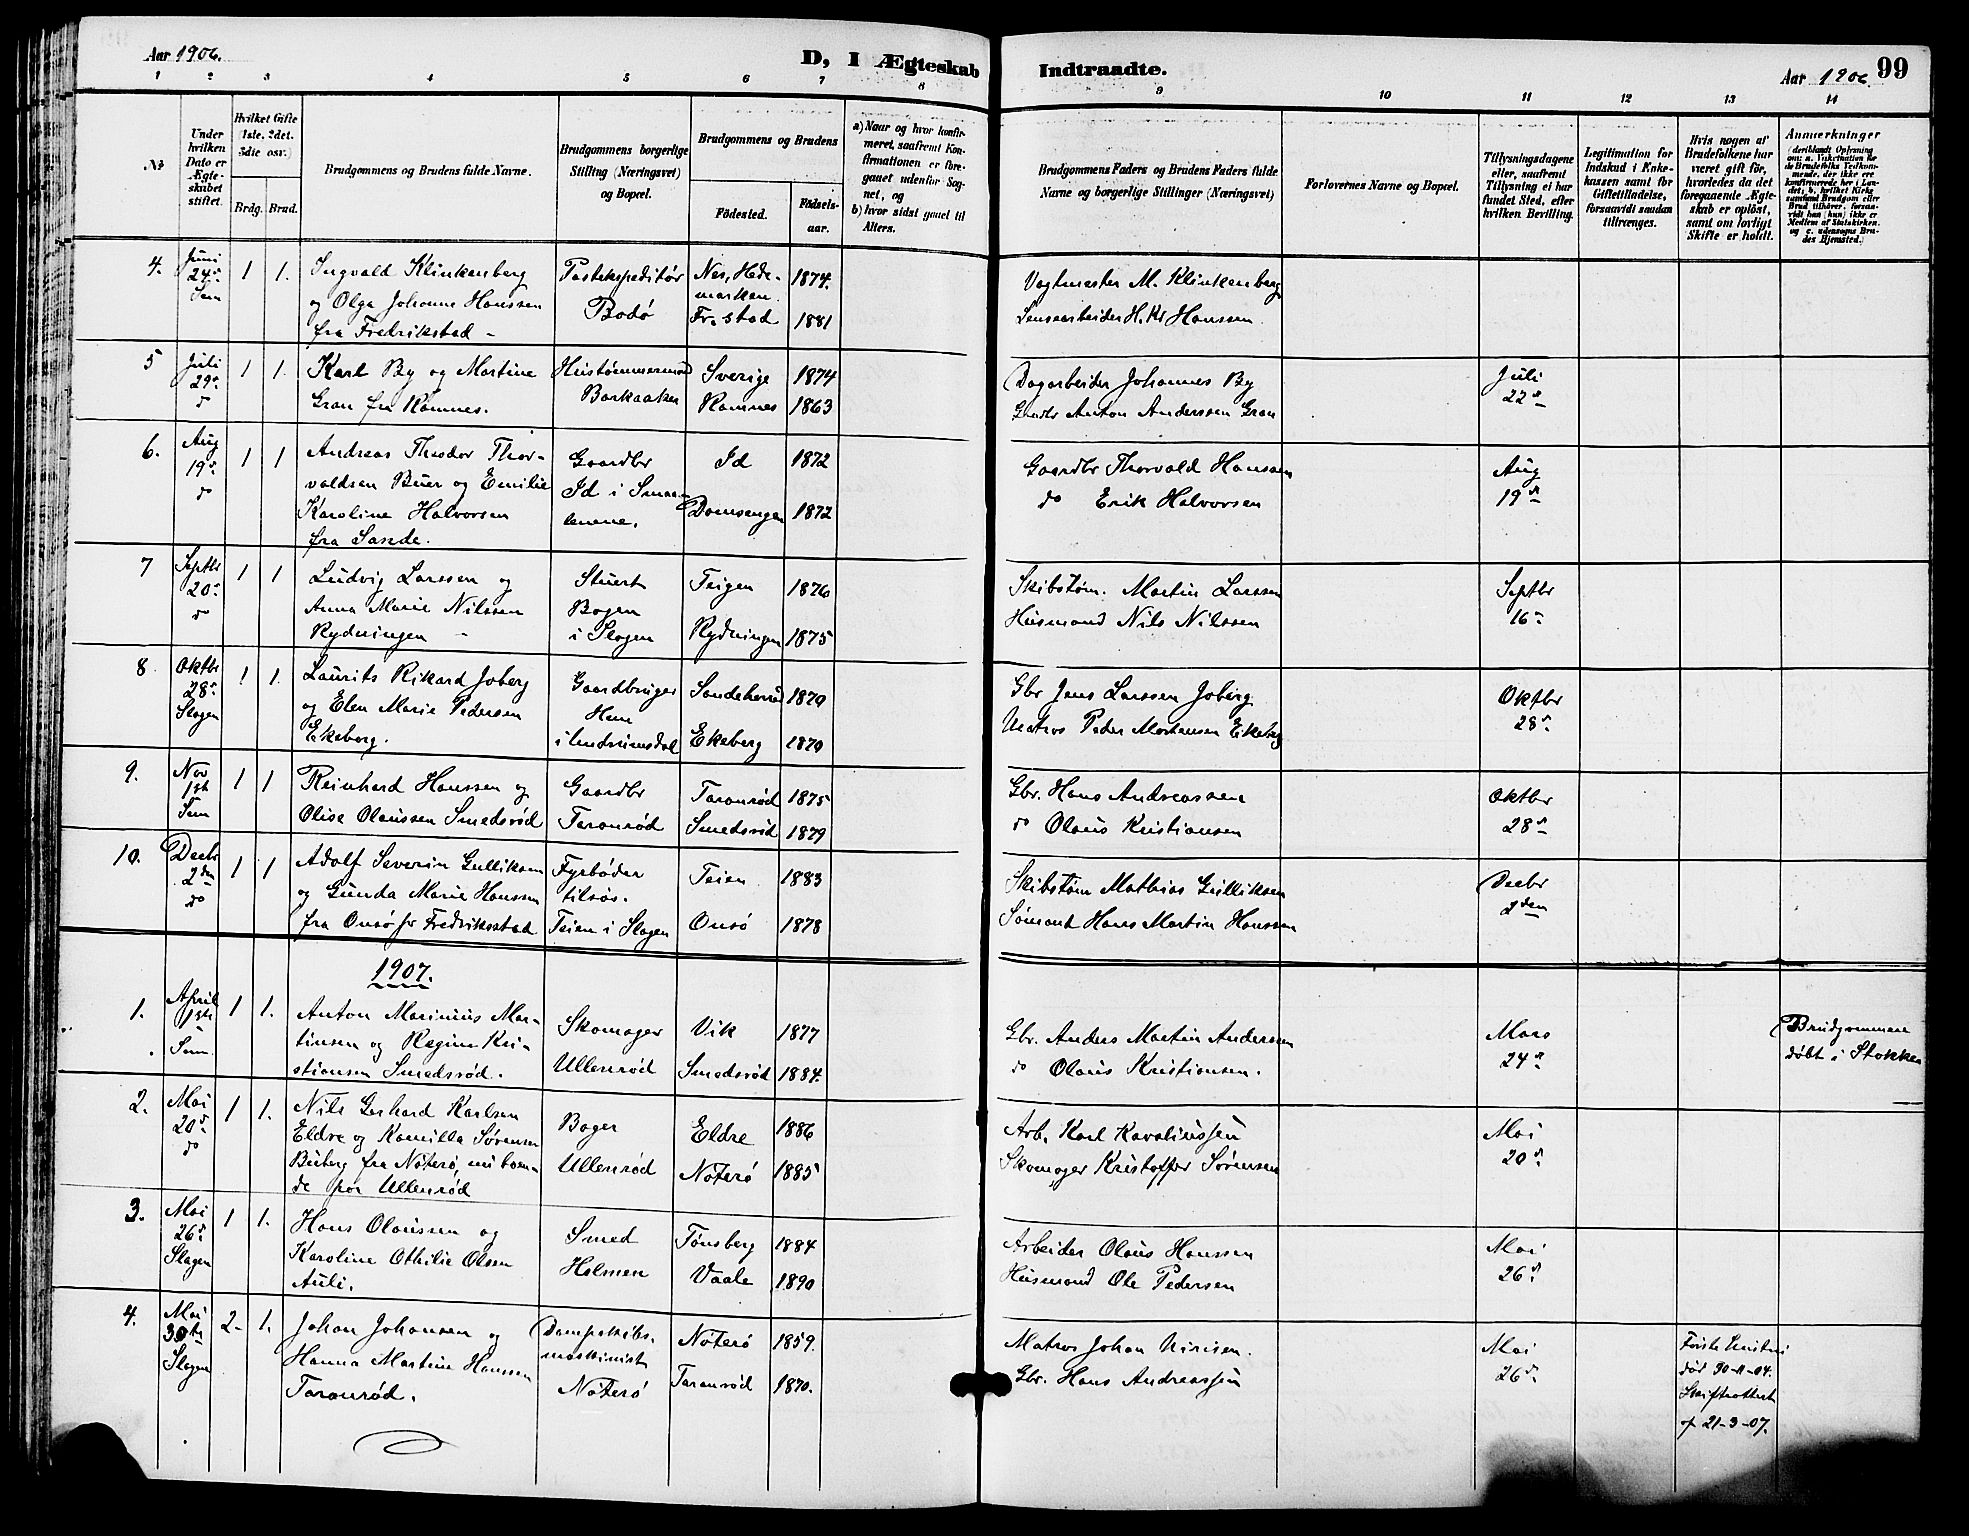 Aar 1906.
D, I Ægteskab Indtraadte.
Aar 1906 99
1 2 3 4 5 6 7 8 9 10 11 12 13 14
№
Under hvilken Dato er Ægteskabet stiftet.
Hvilket Gifte 1ste. 2det. 3die osv.)
Brdg. Brud.
Brudgommens og Brudens fulde Navne.
Brudgommens borgerlige Stilling (Næringsvei) og Bopæl.
Brudgommens og Brudens
Fødested.
Fødselsaar.
a) Naar og hvor konfirmeret, saafremt Konfirmationen er foregaaet udenfor Sognet, og
b) hvor sidst gaaet til Alters.
Brudgommens Faders og Brudens Faders fulde Navne og borgerlige Stillinger (Næringsvei)
Forlovernes Navne og Bopæl.
Tillysningsdagene eller, saafremt Tillysning ei har fundet Sted, efter hvilken Bevilling.
Legitimation for Indskud i Enkekassen samt for Giftetilladelse, forsaavidt saadan tiltrænges.
Hvis nogen af Brudefolkene har været gift før, hvorledes da det foregaaende Ægteskab er opløst, samt om lovligt Skifte er holdt.
Anmerkninger
(deriblandt Oplysning om: a. Vaksination for de Brudefolks Vedkommende, der ikke ere konfirmerede her i Landet; b. hvilket Kirkesamfund Brudgom eller Brud tilhører, forsaavidt han (hun) ikke er Medlem af Statskirken, og c. udensogns Brudes Hjemsted.)
4. Juni 24de Sem 1 1. Ingvald Klinkenberg
og Olga Johanne Hanssen
fra Fredrikstad -
Postekspeditør
Bodø
Nes, Hedemarken 1874.
Fr.stad 1881
Vagtmester M. Klinkenberg
Lensearbeider H. Kr Hanssen.
5 Juli 29de do 1 1. Karl By og Martine
Gran fra Ramnes.
Hustømmermand
Barkaaker
Sverige 1874
Ramnes 1863
Dagarbeider Johannes By
Gaardbr Anton Anderssen Gran
Juli
22de
6. Aug 19de do 1 1 Andreas Theodor Thorvaldsen
Buer og Emilie
Karoline Halvorsen
fra Sande.
Gaardbr
Id i Smaalenene.
Id 1872
Domsengen 1872
Gaardbr Thorvald Hansen
do Erik Halvorsen
Aug
19de
7 Septbr 20de do 1 1 Ludvig Larssen og
Anna Marie Nilssen
Rydningen -
Stuert
Bogen
i Slagen
Teigen 1876
Rydningen 1875
Skibstøm. Martin Larssen
Husmand Nils Nilssen
Septbr
16de
8 Oktbr 28de Slagen 1 1. Laurits Rikard Joberg
og Elen Marie Pedersen
Ekeberg.
Gaardbruger
Hem
i Undrumsdal
Sandeherred 1879
Ekeberg 1879
Gbr Jens Larssen Joberg
Matros Peder Mortensen Ekeberg
Oktbr
28de
9. Nov 1ste Sem 1 1 Reinhard Hanssen og
Olise Olaussen Smedsrød
Gaardbr
Taranrød
Taranrød 1875
Smedsrød 1879
Gbr. Hans Andreassen
do Olaus Kristiansen
Oktbr
28de
10. Decbr 2den do 1 1 Adolf Severin Gulliksen
og Gunda Marie Hanssen
fra Onsø pr Fredriksstad
Fyrbøder
tilsøs.
Teien i Slagen
Teien 1883
Onsø 1878
Skibstøm Mathias Gulliksen
Sømand Hans Martin Hanssen
Decbr
2den
1907.
1. April 1ste Sem. 1 1. Anton Marinius Martinsen
og Regine Kristiansen
Smedsrød.
Skomager
Ullenrød
Vik 1877
Smedsrød 1884.
Gbr. Anders Martin Anderssen
do Olaus Kristiansen.
Mars
24de
Brudgommen
døbt i Stokke
2. Mai 20de do 1 1. Nils Gerhard Karlsen
Eldre og Kamilla Sørensen
Buberg fra Nøterø, nu boende
paa Ullenrød
Bager
Ullenrød
Eldre 1886
Nøterø 1885
Arb. Karl Karoliussen
Skomager Kristoffer Sørensen
Mai
20de
3. Mai 26de Slagen 1 1. Hans Olaussen og
Karoline Othilie Olsen
Auli.
Smed
Holmen
Tønsberg 1884
Vaale 1890
Arbeider Olaus Hanssen
Husmand Ole Pedersen
Mai
26de
4. Mai 30te Slagen 2- 1. Johan Johansen og
Hanna Martine Hanssen
Taranrød.
Dampskibsmaskinist
Nøterø
Nøterø 1859.
Taranrød 1870.
Matros Johan
Gbr. Hans Andreassen
Mai
26de
Første Hustru
død 30-11-04.
Skifteattest
af 21-3-07.